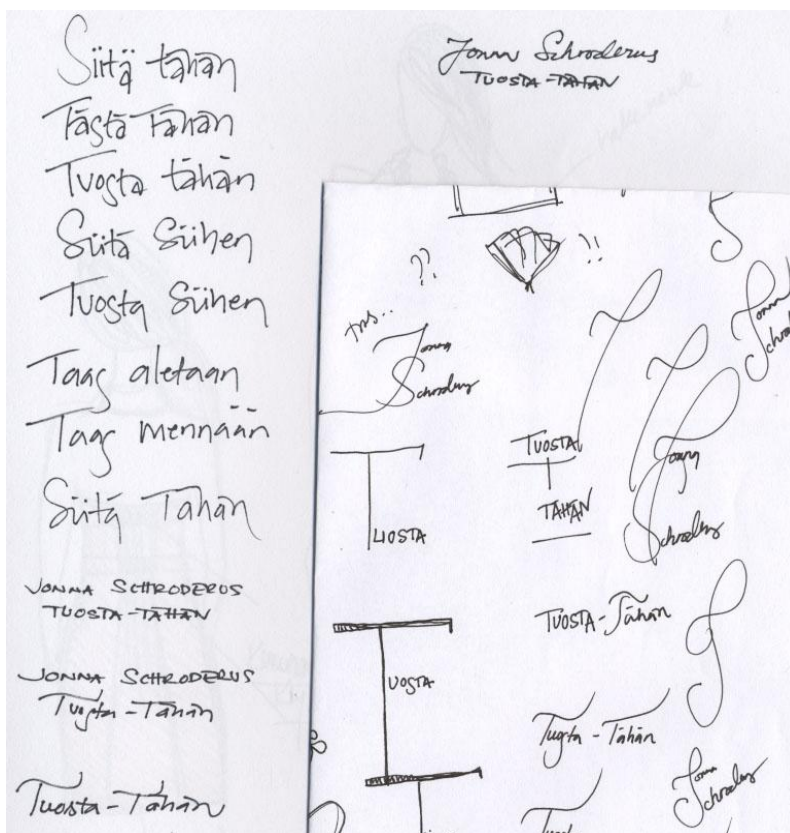 Siitä tähän
Tästä Tähän
Tuosta tähän
Siitä Siihen
Tuosta Siihen
Taas aletaan
Taas mennään
Siitä Tähän
JONNA SCHRODERUS
TUOSTA-TÄHÄN
JONNA SCHRODERUS
Tuosta-Tähän
Tuosta-Tähän
Jonna Schroderus
TUOSTA-TÄHÄN
??
!!
Jonna
Schroderus
Jonna
Schroderus
TUOSTA
TÄHÄN
UOSTA
Jonna
Schroderus
TUOSTA-Tähän
UOSTA
Tuosta-Tähän
Jonna
Schroderus